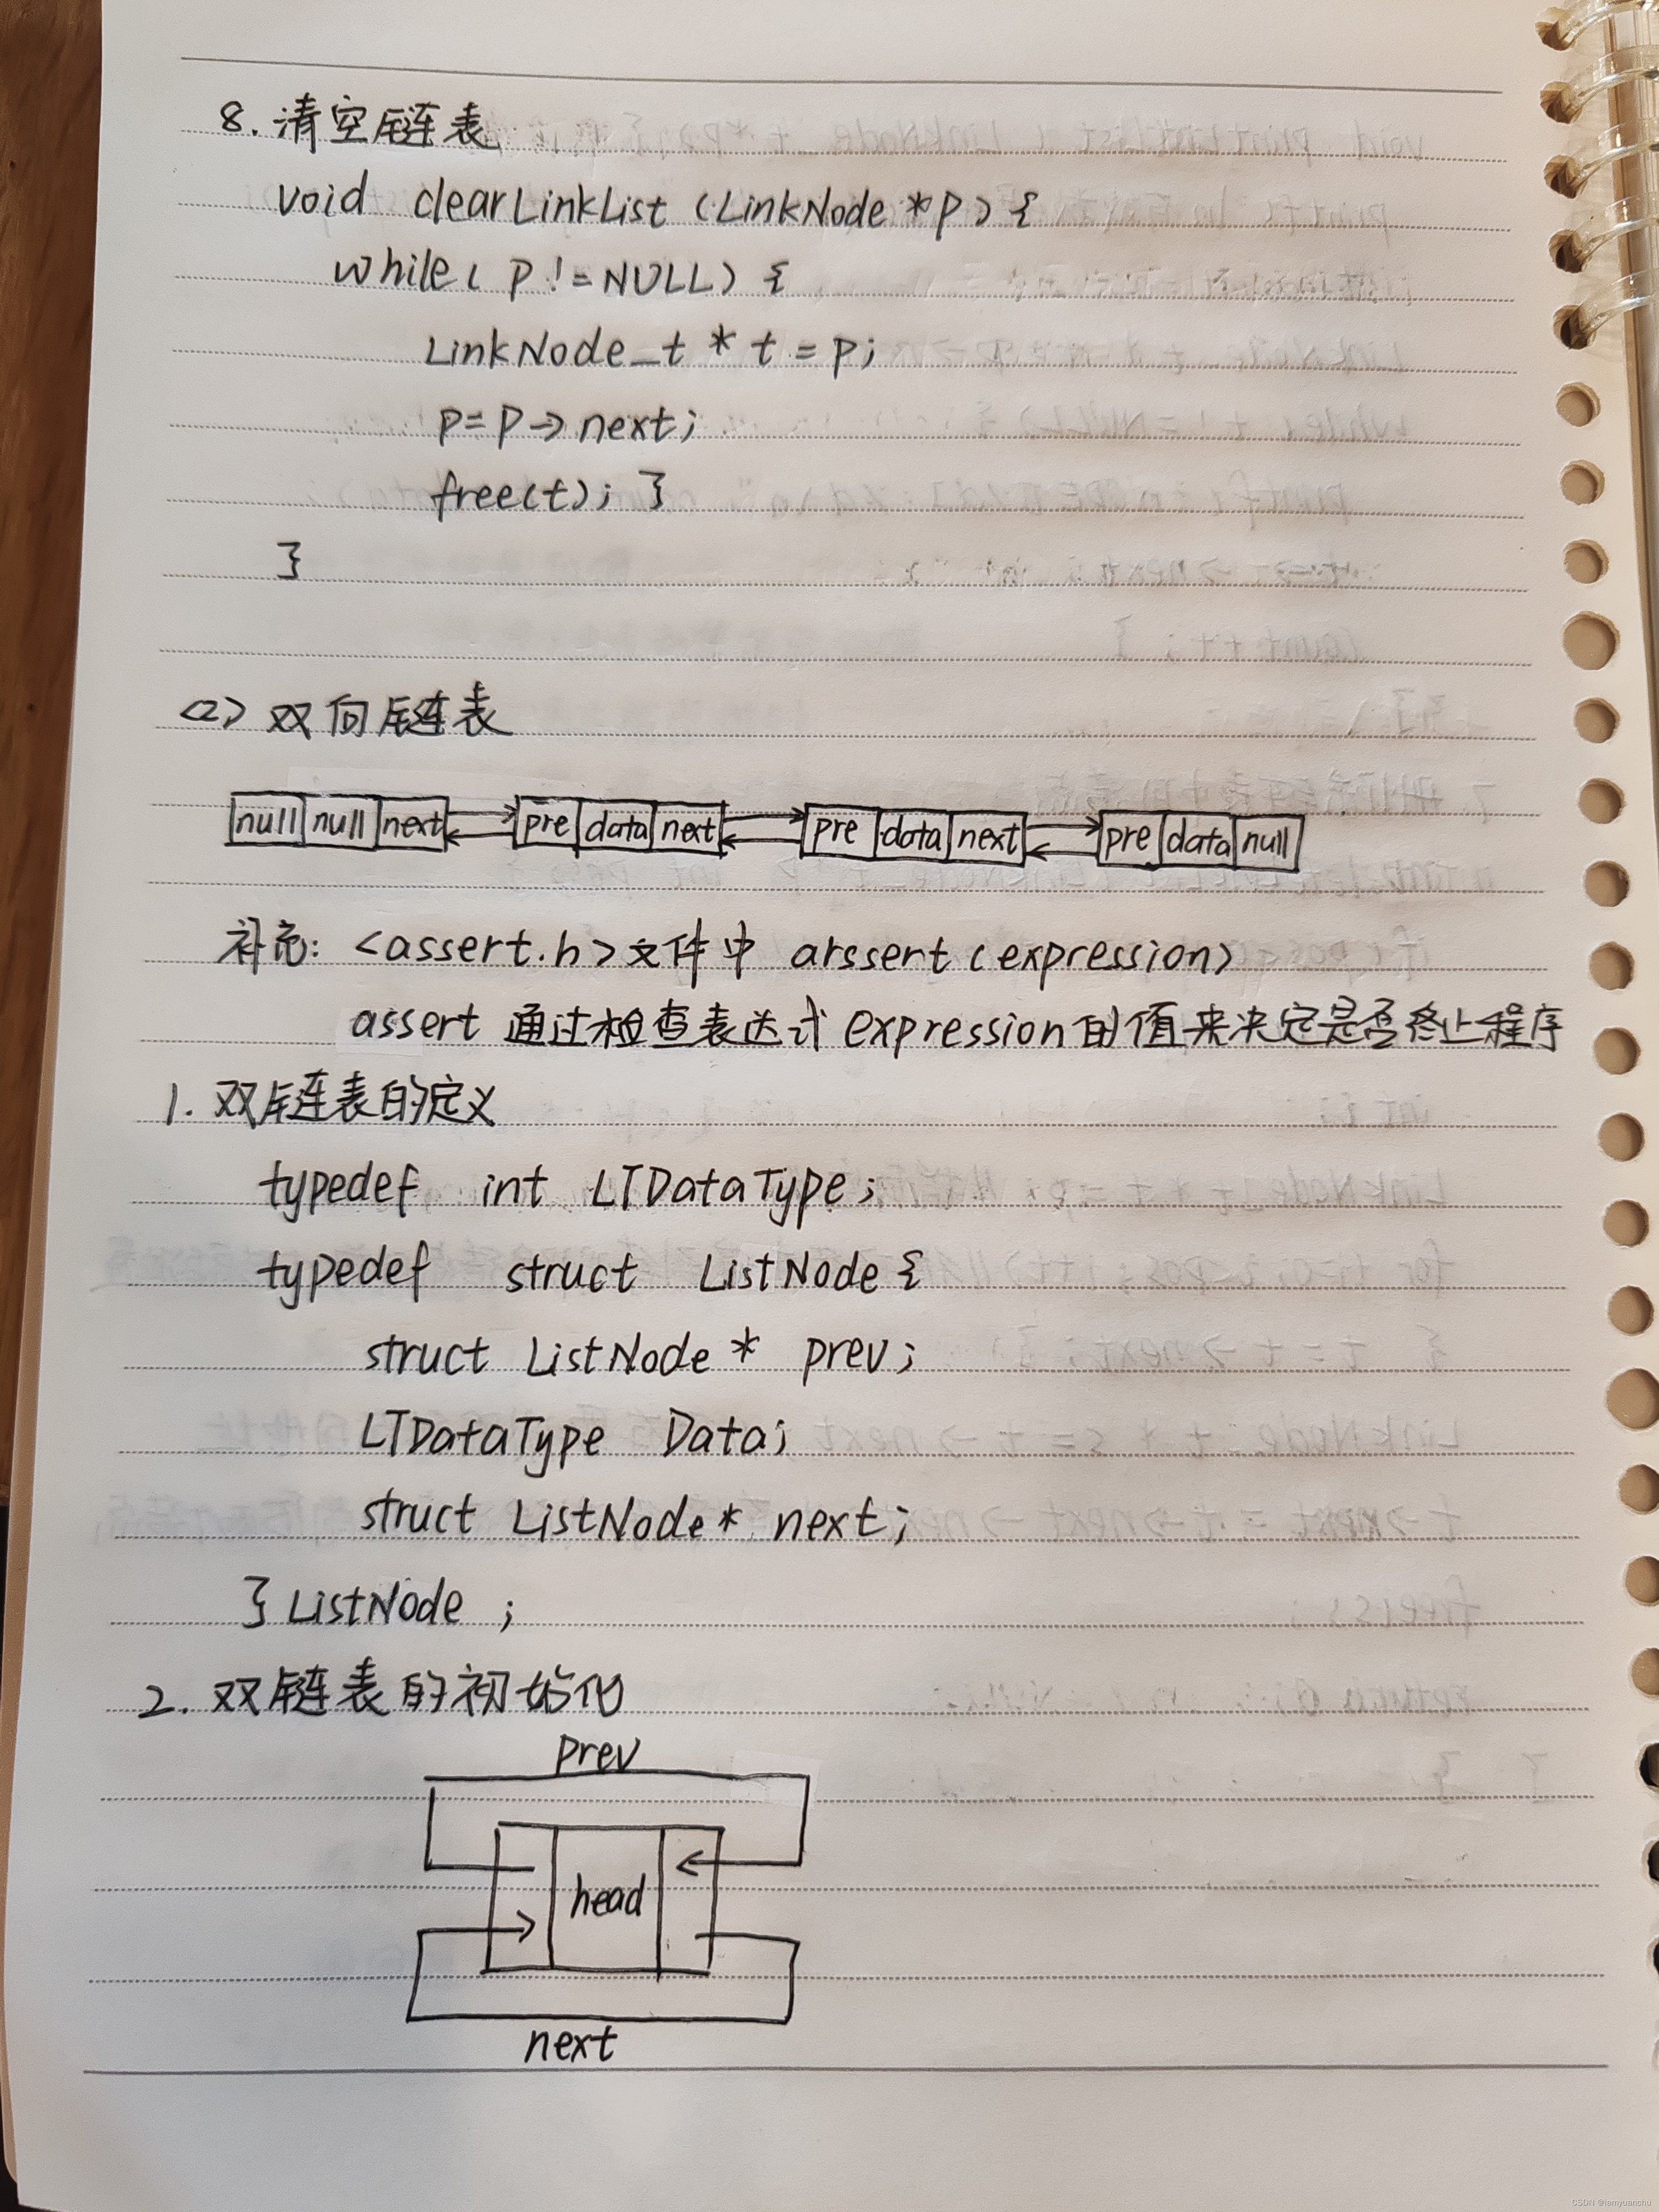 8. 清空链表
void clearLinkList (LinkNode *p) {
while( p != NULL) {
LinkNode_t * t = p;
p=p->next;
free(t); }
}
<2> 双向链表
null null next pre data next pre data next pre data null
补充: <assert.h>文件中 arssert (expression)
assert 通过检查表达式 expression的值来决定是否终止程序
1. 双链表的定义
typedef int LTDataType;
typedef struct ListNode {
struct ListNode * prev;
LTDataType Data;
struct ListNode * next;
} ListNode ;
2. 双链表的初始化
prev
head
next
CSDN @iamyuanchu